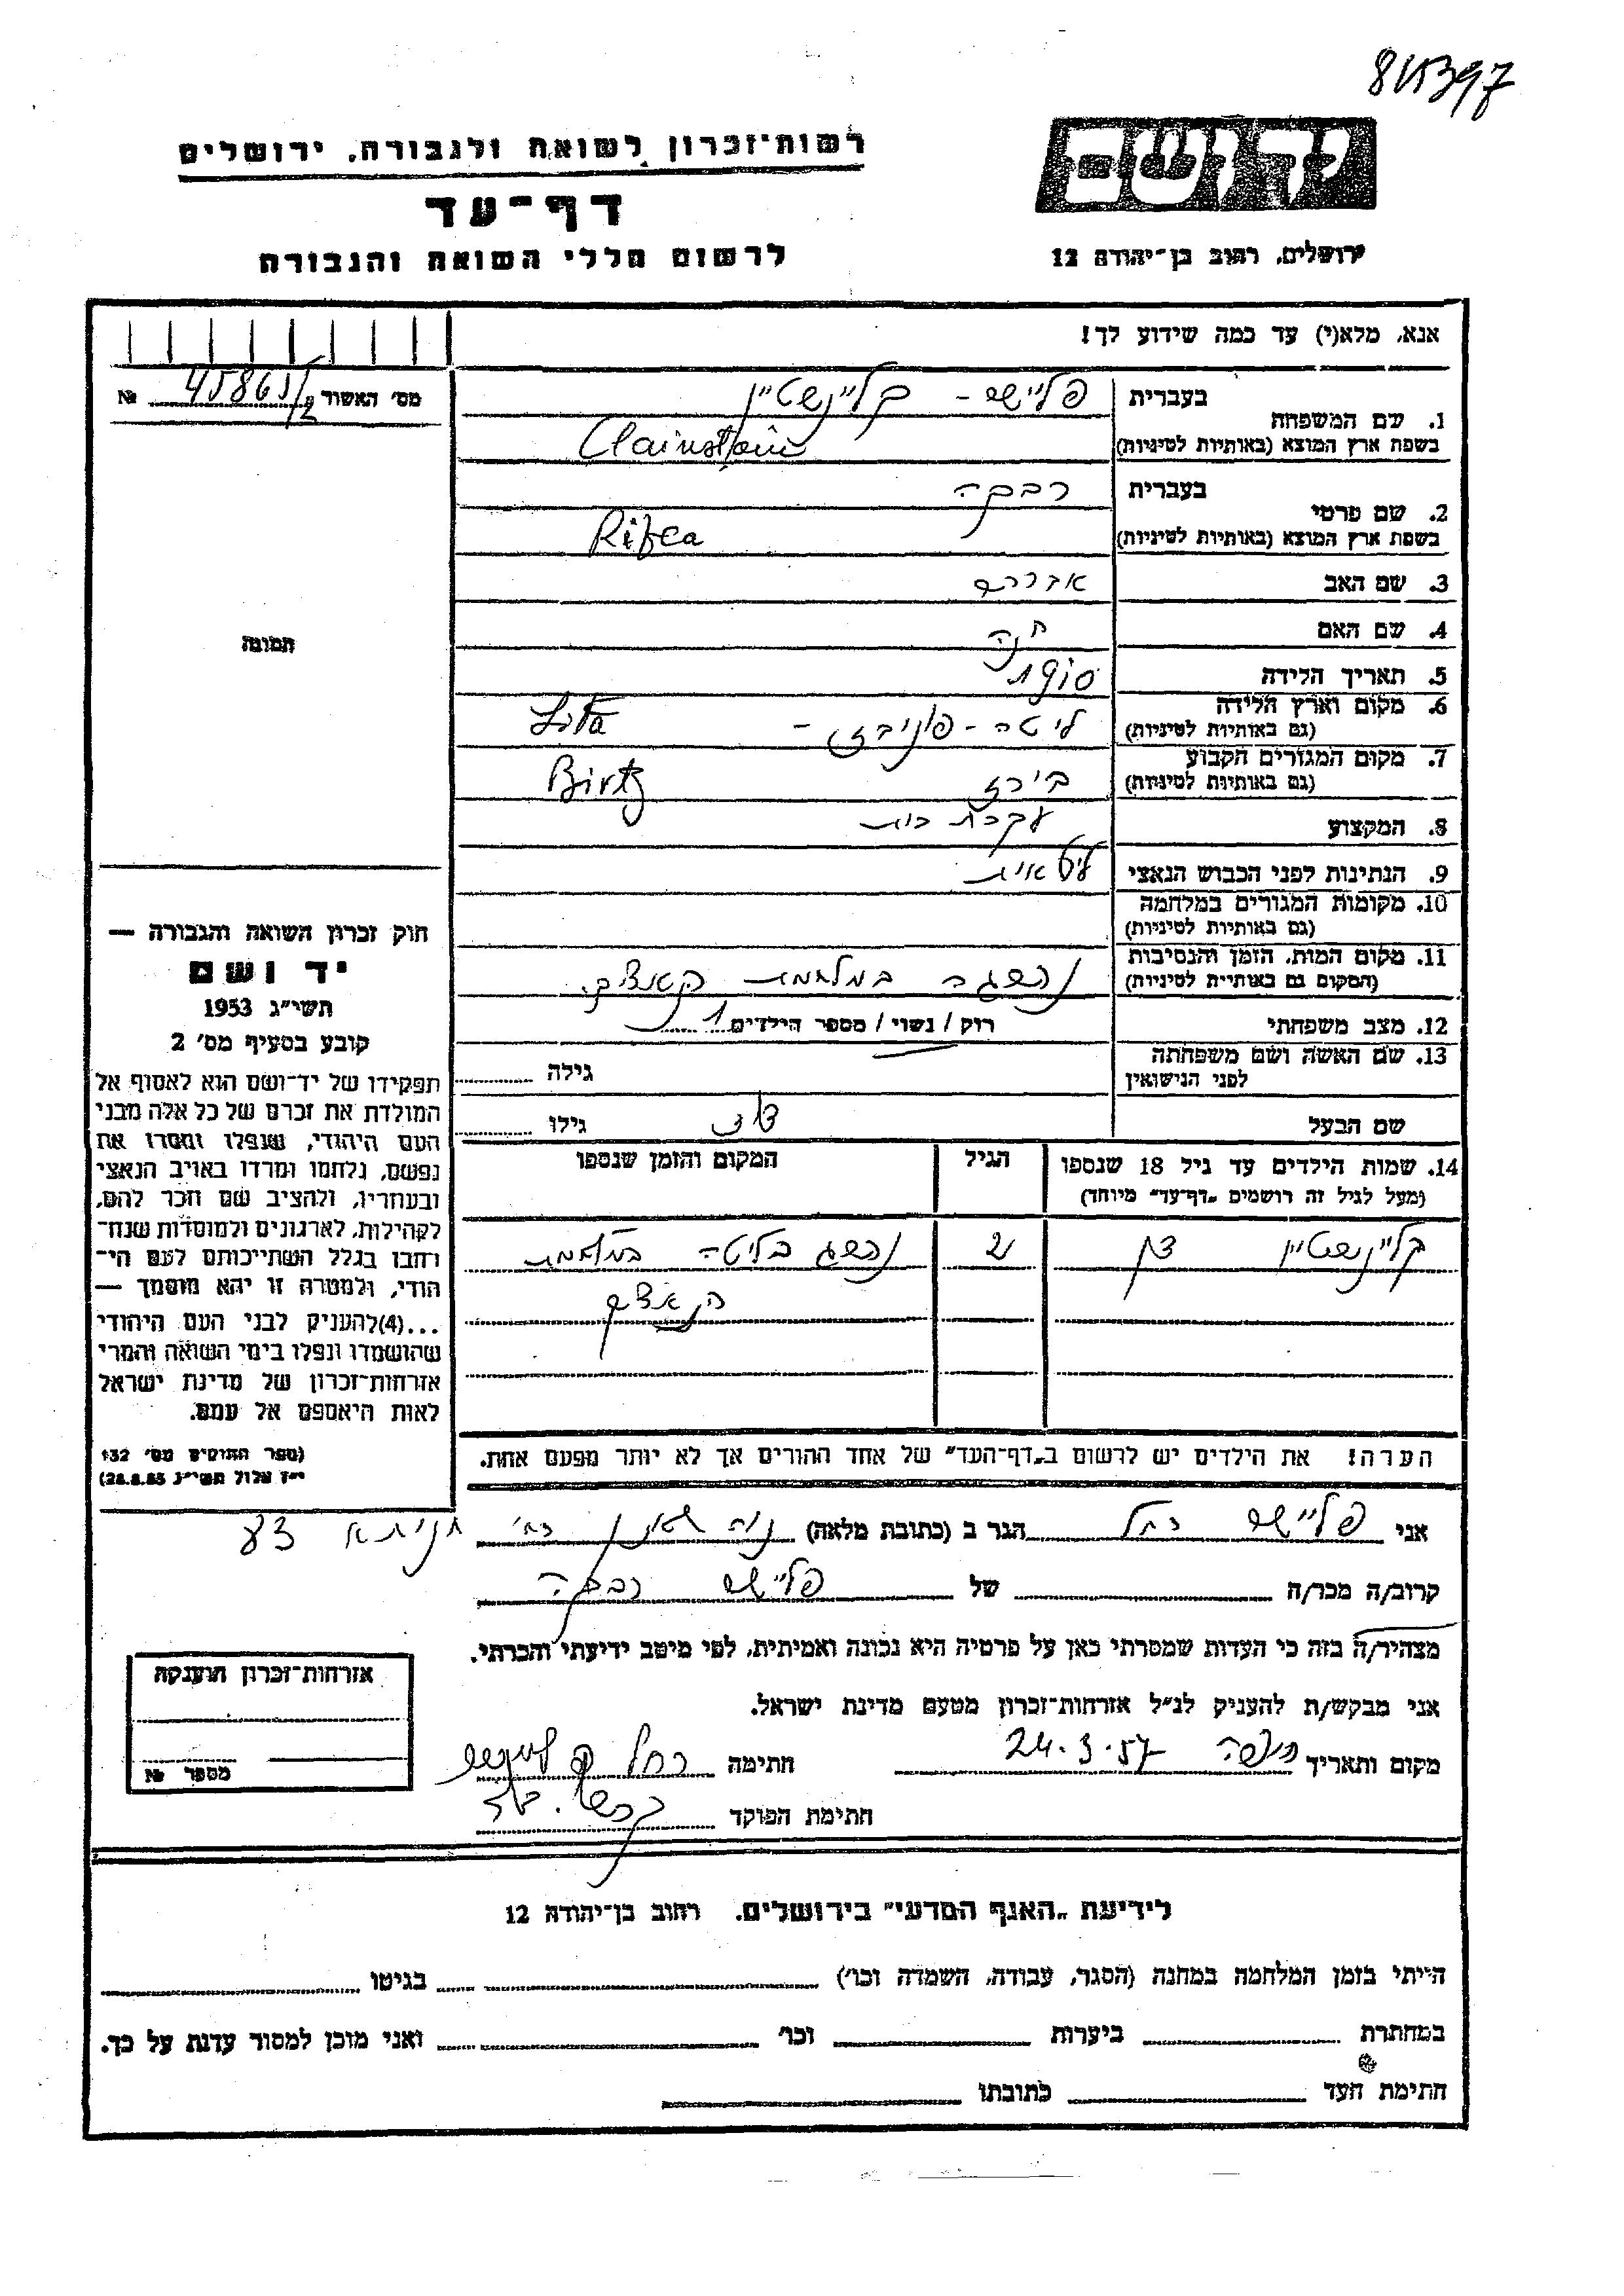 רשות־זכרון לשואה ולגבורה, ירושלים
דף־עד
לרשום חללי השואה והגבורה
ידושם
ירושלים, רחוב בן־יהודה 12
אנא, מלא(י) עד כמה שידוע לך!
מס׳ האשור № 45863/2
תמונה
1. שם המשפחה בעברית פלייש - קליינשטיין
בשפת ארץ המוצא (באותיות לטיניות) Clainstein
2. שם פרטי בעברית רבקה
בשפת ארץ המוצא (באותיות לטיניות) Rifca
3. שם האב אברהם
4. שם האם חנה
5. תאריך הלידה
6. מקום וארץ הלידה (גם באותיות לטיניות) ליטה - פוניבז - Lita
7. מקום המגורים הקבוע (גם באותיות לטיניות) בירז Birtz
8. המקצוע עקרת בית
9. הנתינות לפני הכבוש הנאצי ליטאית
10. מקומות המגורים במלחמה (גם באותיות לטיניות)
11. מקום המות, הזמן והנסיבות (המקום גם באותיות לטיניות) נהרגה במלחמת הנאצים.
12. מצב משפחתי רוק / נשוי / מספר הילדים 1
13. שם האשה ושם משפחתה לפני הנישואין גילה
שם הבעל גילו
14. שמות הילדים עד גיל 18 שנספו הגיל המקום והזמן שנספו
(מעל לגיל זה רושמים „דף־עד״ מיוחד)
קליינשטיין נהרג בליטה במלחמת
הנאצים
הערה! את הילדים יש לרשום ב„דף־העד״ של אחד ההורים אך לא יותר מפעם אחת.
חוק זכרון השואה והגבורה —
יד ושם
תשי״ג 1953
קובע בסעיף מס׳ 2
תפקידו של יד־ושם הוא לאסוף אל
המולדת את זכרם של כל אלה מבני
העם היהודי, שנפלו ומסרו את
נפשם, נלחמו ומרדו באויב הנאצי
ובעוזריו, ולהציב שם וזכר להם,
לקהילות, לארגונים ולמוסדות שנח־
רחבו בגלל השתייכותם לעם הי־
הודי, ולמטרה זו יהא מוסמך —
...(4)להעניק לבני העם היהודי
שהושמדו ונפלו בימי השואה והמרי
אזרחות־זכרון של מדינת ישראל
לאות היאספם אל עמם.
(ספר החוקים מס׳ 132
י״ז אלול תשי״ג 28.8.53)
אני פלייש רחל הגר ב (כתובת מלאה) נוה שאנן רח׳ חניתא
קרוב/ה מכר/ה של פלייש רבקה
מצהיר/ה בזה כי העדות שמסרתי כאן על פרטיה היא נכונה ואמיתית, לפי מיטב ידיעתי והכרתי.
אני מבקש/ת להעניק לנ״ל אזרחות־זכרון מטעם מדינת ישראל.
מקום ותאריך חיפה 24.3.57 חתימה רחל פלייש
חתימת הפוקד
אזרחות־זכרון הוענקה
מספר №
לידיעת „האגף המדעי״ בירושלים, רחוב בן־יהודה 12
הייתי בזמן המלחמה במחנה (הסגר, עבודה, השמדה וכו׳) בגיטו
במחתרת ביערות וכו׳ ואני מוכן למסור עדות על כך.
חתימת העד כתובתו